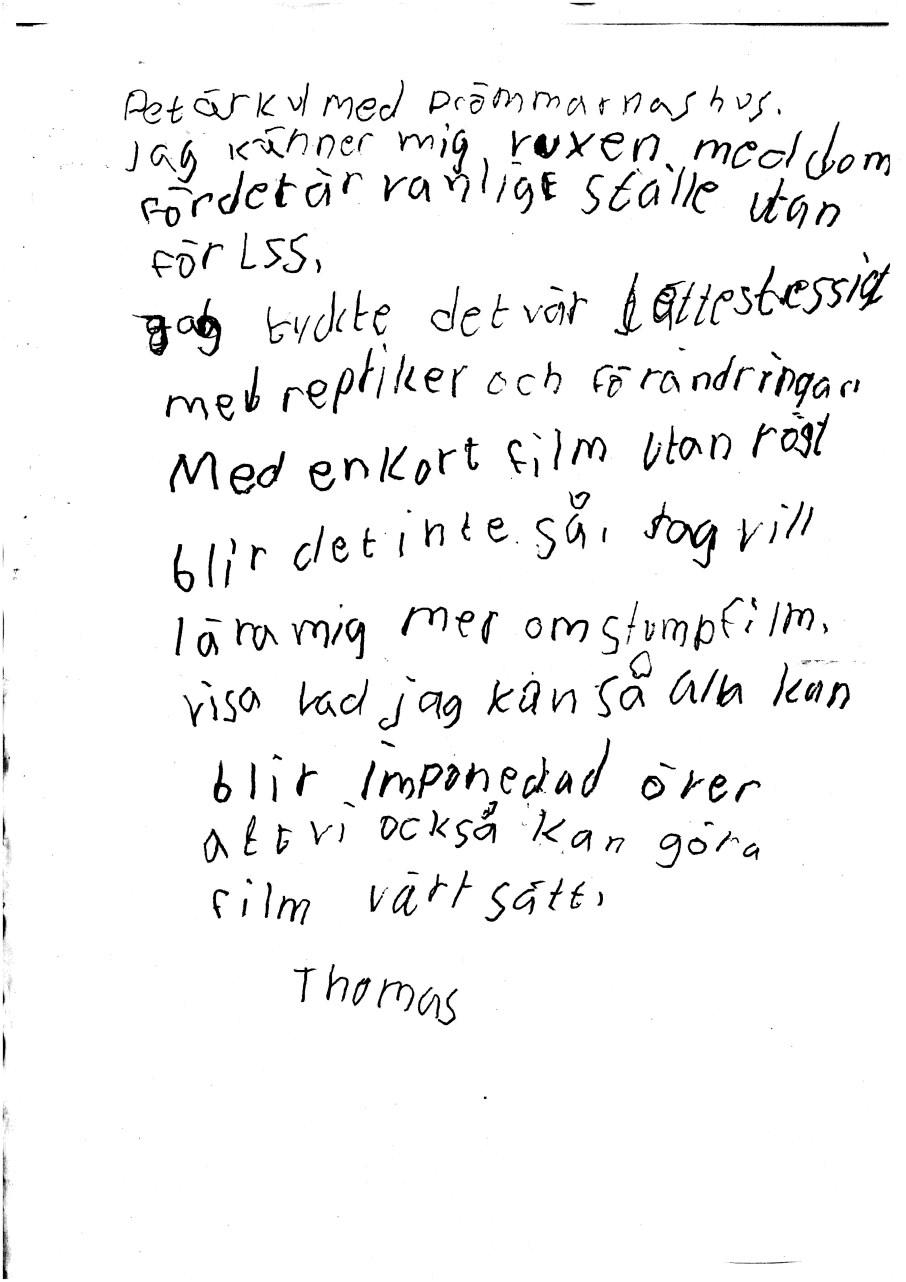 Det är kul med Drömmarnas hus.
Jag känner mig vuxen med dom
för det är vanligt ställe utan
för LSS.
Jag tyckte det var lättestessigt
med reptiker och förändringar.
Med en kort film utan röst
blir det inte så. Jag vill
lära mig mer om stumpfilm.
visa vad jag kan så alla kan
blir imponedad över
att vi också kan göra
film vårt sätt.
Thomas